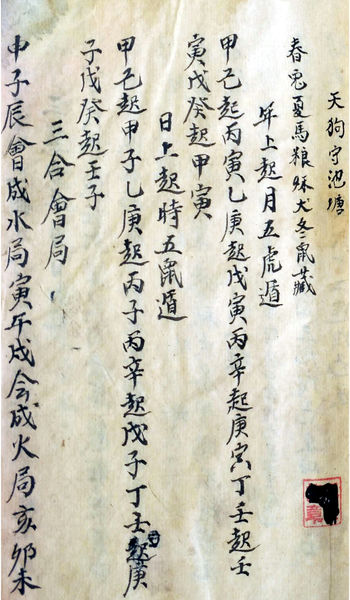 天狗守池塘
春兎夏馬粮秋犬冬鼠藏
年上起月五虎遁
甲己起丙寅乙庚起戊寅丙辛起庚寅丁壬起壬
寅戊癸起甲寅
日上起時五鼠遁
甲己起甲子乙庚起丙子丙辛起戊子丁壬起庚
子戊癸起壬子
三合會局
申子辰會成水局寅年戌会成火局亥卯未